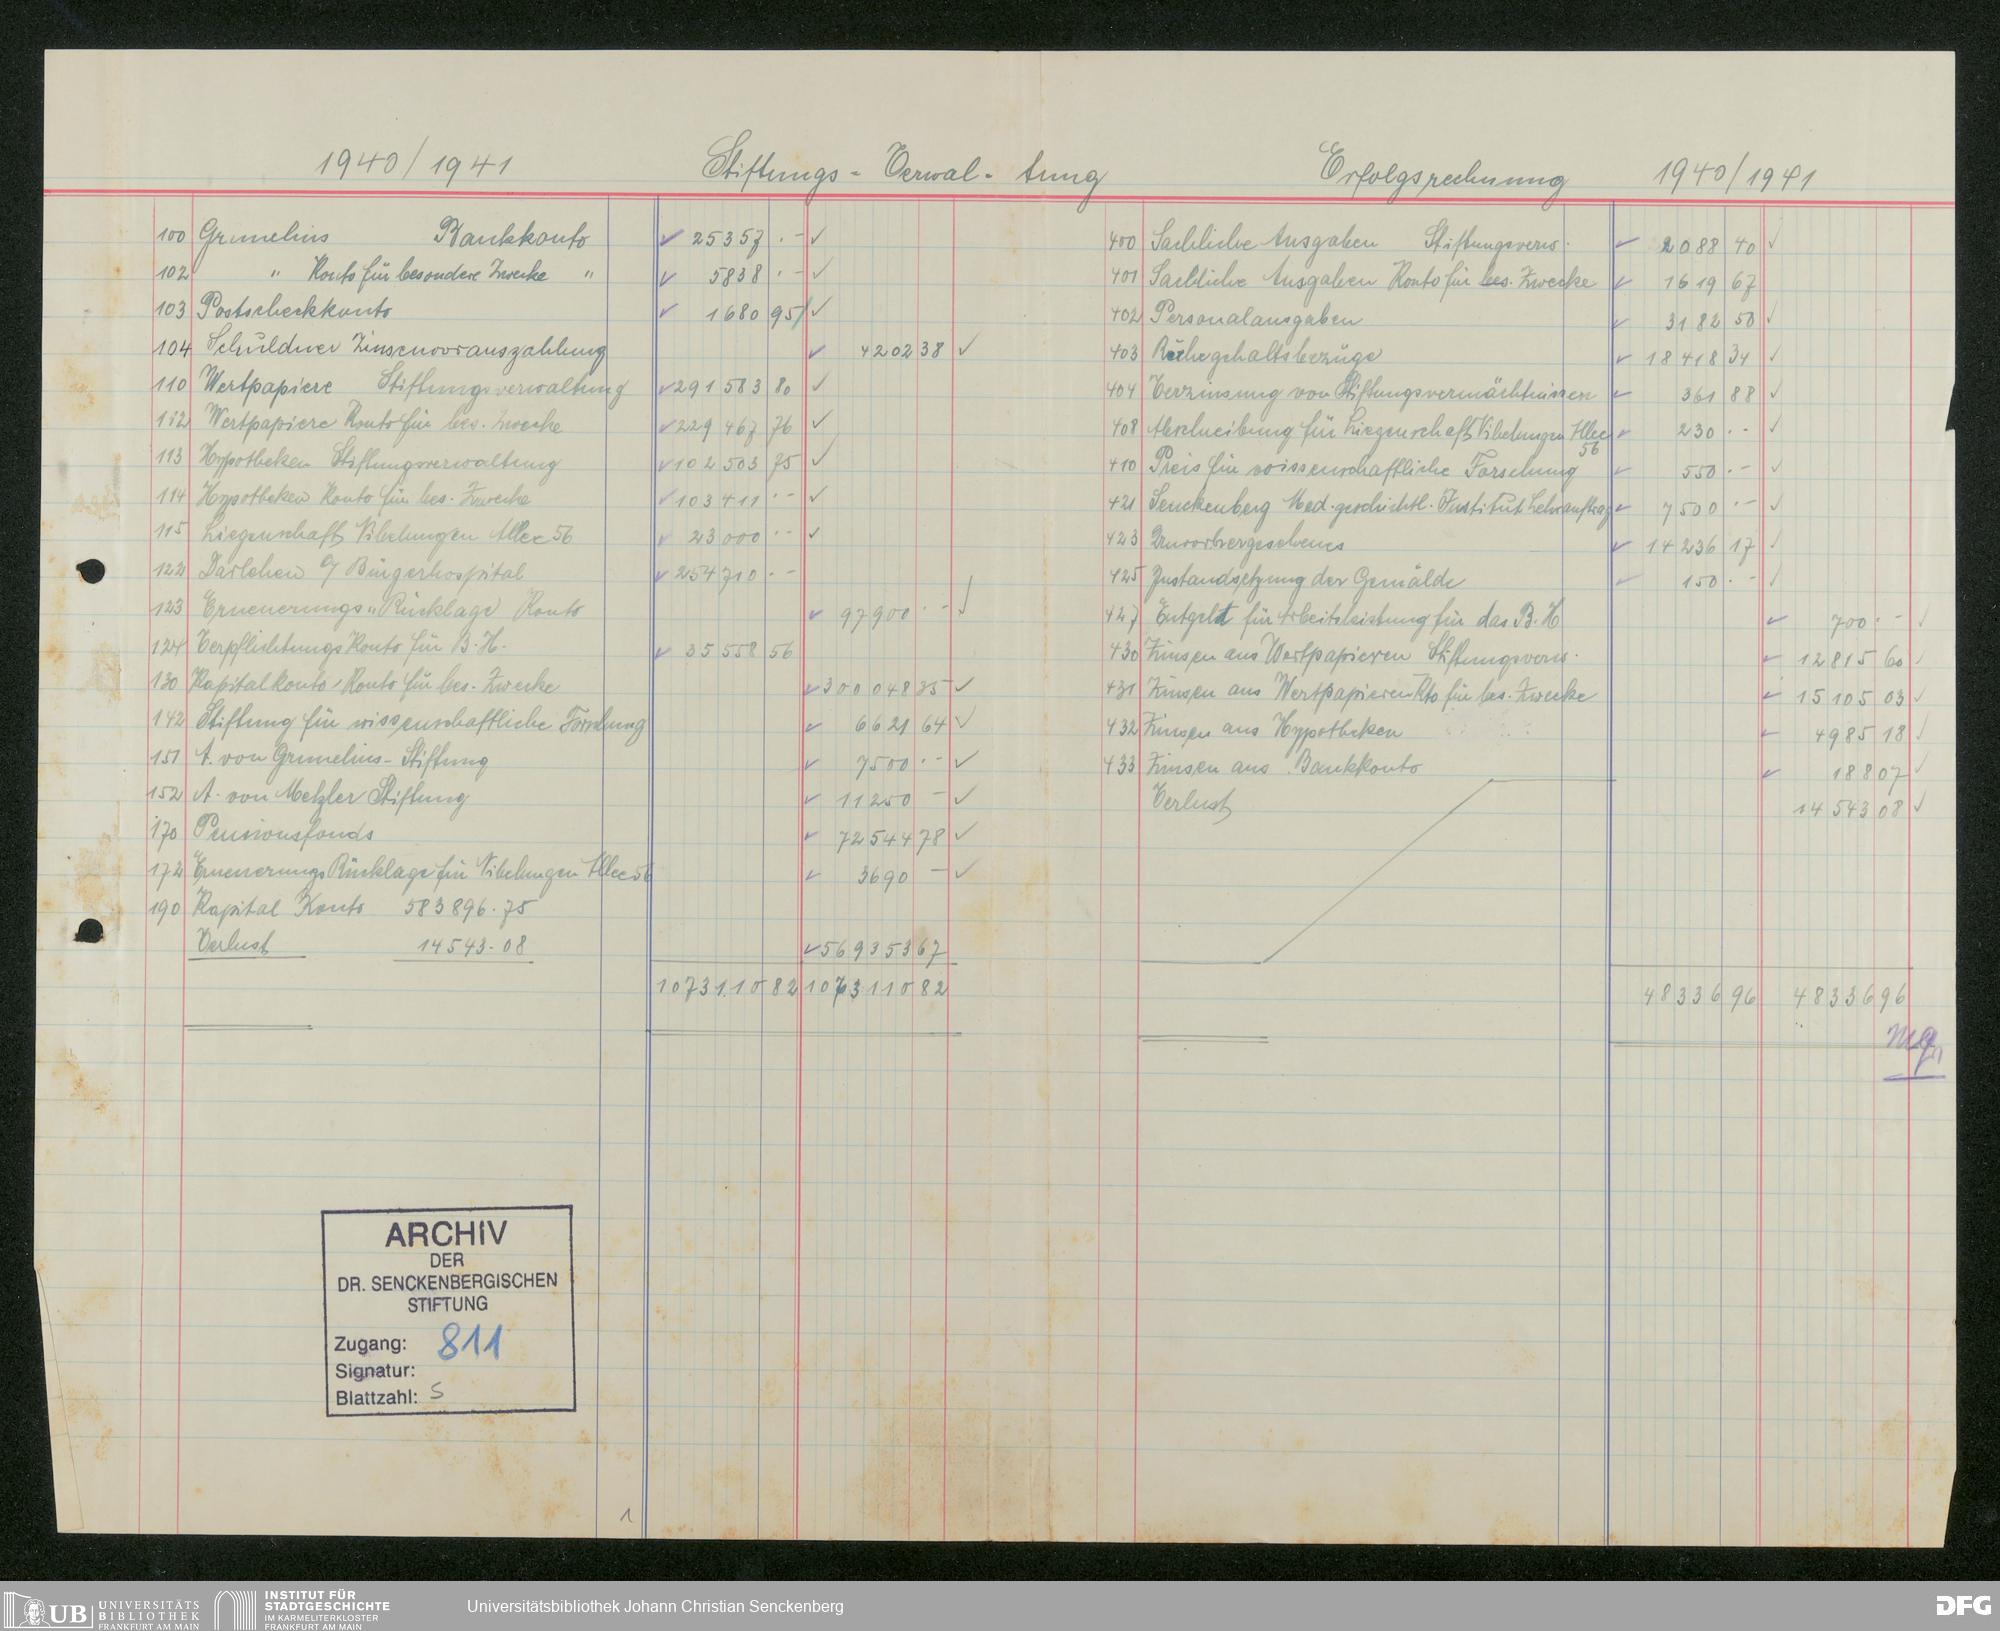 1940/1941 Stiftungs-Verwal-tung Erfolgsrechnung 1940/1941
100 Grunelius Bankkonto 25357.-
102 " Konto für besondere Zwecke " 5838.-
103 Postscheckkonto 1680 95
104 Schuldner Zinsenvorauszahlung 4202 38
110 Wertpapiere Stiftungsverwaltung 291583 80
112 Wertpapiere Konto für bes. Zwecke 229467 76
113 Hypotheken Stiftungsverwaltung 102503 75
114 Hypotheken Konto für bes. Zwecke 103411.-
115 Liegenschaft Nibelungen Allee 56 23000.-
122 Darlehen a/ Bürgerhospital 254710.-
123 Erneuerungs-Rücklage Konto 97900.-
124 Verpflichtungs Konto für B.H. 35558 56
130 Kapitalkonto, Konto für bes. Zwecke 300048 35
142 Stiftung für wissenschaftliche Forschung 6621 64
151 A. von Grunelius-Stiftung 7500.-
152 A. von Metzler Stiftung 11250 -
170 Pensionsfonds 72544 78
172 Erneuerungs Rücklage für Nibelungen Allee 56 3690 -
190 Kapital Konto 583896.75
Verlust 14543.08 569353 67
1073110 82 1073110 82
400 Sachliche Ausgaben Stiftungsverw. 2088 40
401 Sachliche Ausgaben Konto für bes. Zwecke 1619 67
402 Personalausgaben 3182 50
403 Ruhegehaltsbezüge 18418 34
404 Verzinsung von Stiftungsvermächtnissen 361 88
408 Abschreibung für Liegenschaft Nibelungen Allee 56 230.-
410 Preis für wissenschaftliche Forschung 550.-
421 Senckenberg Med.geschichtl. Institut Lehrauftrag 7500.-
423 Unvorhergesehenes 14236 17
425 Instandsetzung der Gemälde 150.-
427 Entgelt für Arbeitsleistung für das B.H 700.-
430 Zinsen aus Wertpapieren Stiftungsverw. 12815 60
431 Zinsen aus Wertpapieren Kto für bes. Zwecke 15105 03
432 Zinsen aus Hypotheken 4985 18
433 Zinsen aus Bankkonto 188 07
Verlust 14543 08
48336 96 48336 96
ARCHIV
DER
DR. SENCKENBERGISCHEN
STIFTUNG
Zugang: 811
Signatur:
Blattzahl: 5
1
UB UNIVERSITÄTS
BIBLIOTHEK
FRANKFURT AM MAIN
INSTITUT FÜR
STADTGESCHICHTE
IM KARMELITERKLOSTER
FRANKFURT AM MAIN
Universitätsbibliothek Johann Christian Senckenberg
DFG